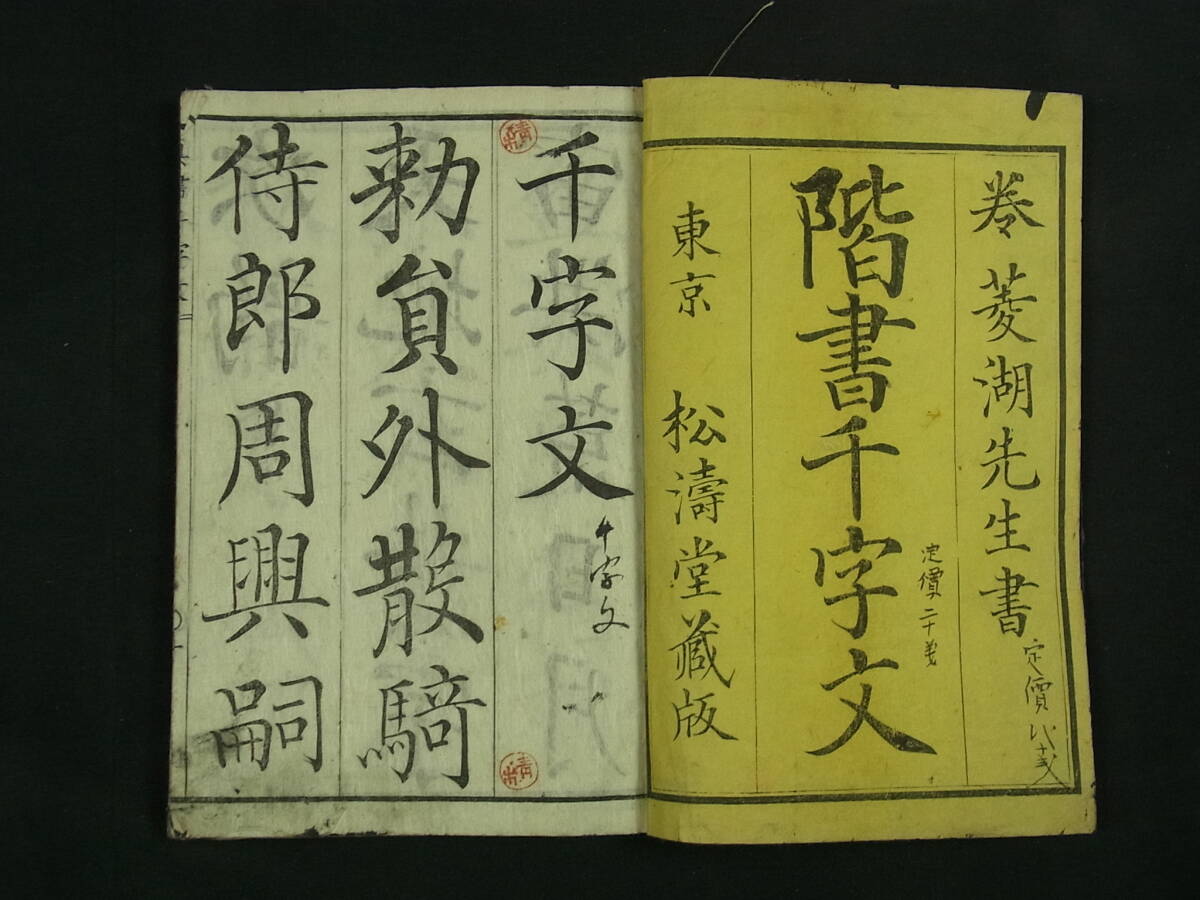 卷菱湖先生書
定價
階書千字文
定價二十
東京 松濤堂藏版
千字文
千字文
勅貟外散騎
侍郎周興嗣